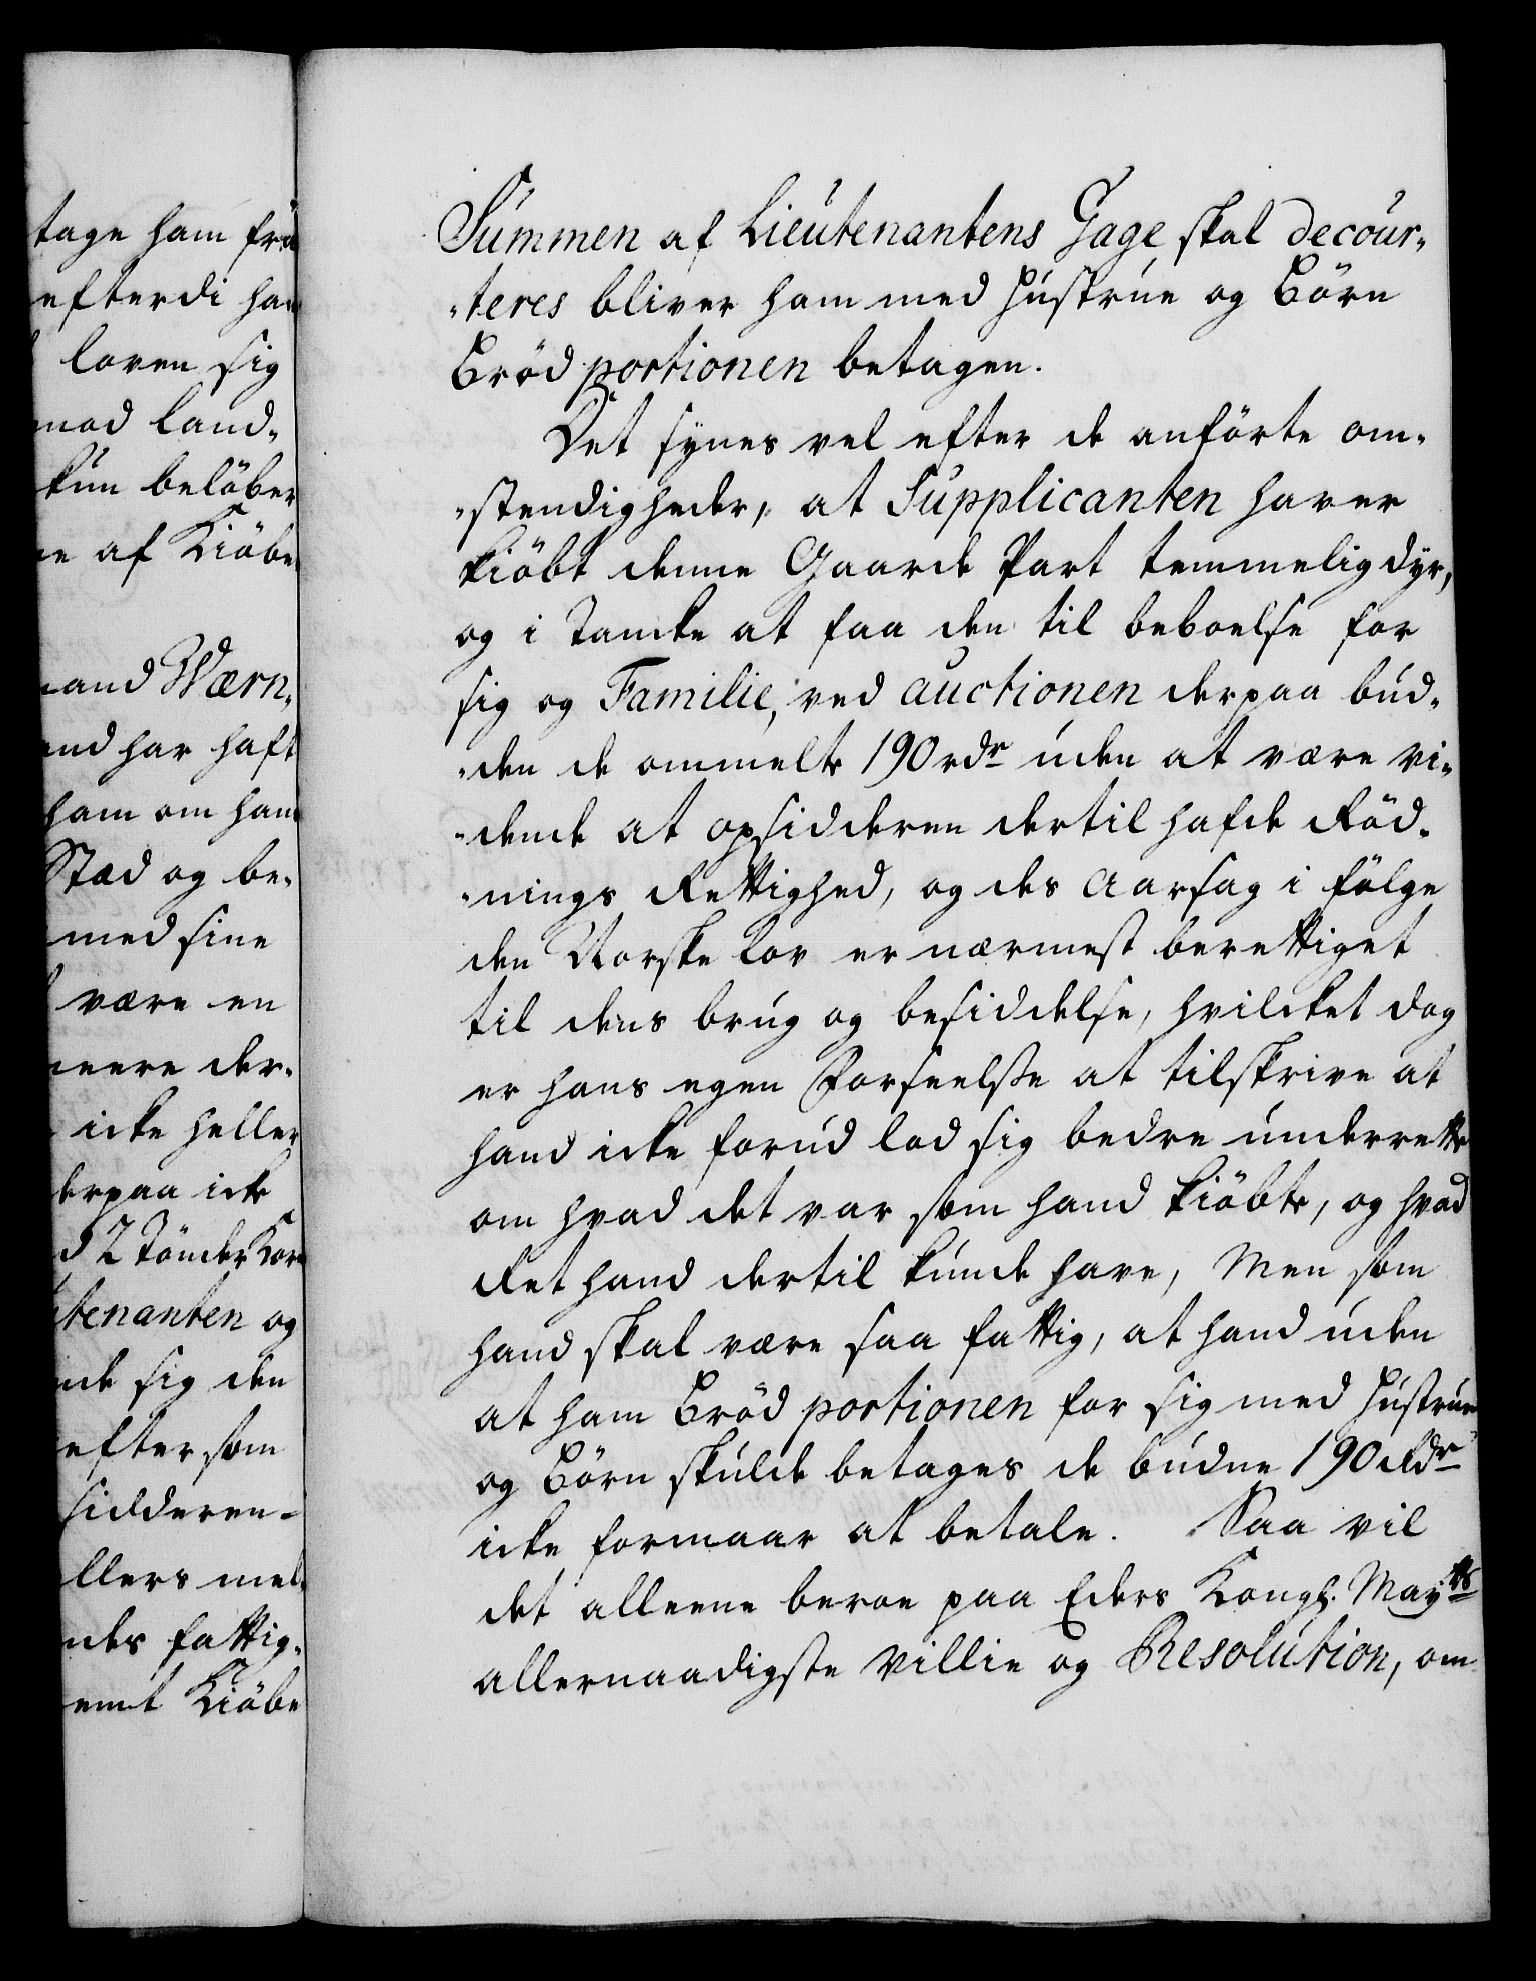 tage ham fra
efterdi han
loven sig
mod land-
kun beløber
af Kiöbe
Wærn-
har haft
ham om ham
Stæd og be-
med sine
være en
meere der-
icke heller
derpaa icke
2 Tönder Korn
tenanten og
sig den
efter som
sidderen-
llers mel-
ndes fattig-
emt Kiöbe
Summen af Lieutenantens Gage skal decour-
-teres bliver ham med hustrue og Börn
Bröd portionen betagen.
Det synes vel efter de anförte om-
-stendigheder, at Supplicanten haver
kiöbt denne Gaarde Part temmelig dyr,
og i Tancke at faa den til beboelse for
sig og Familie, ved auctionen derpaa bud-
-den de ommelte 190 rdr uden at være vi-
-dende at opsidderen dertil hafde Röd-
-nings Rettighed, og des Aarsag i fölge
den Norske Lov er nærmest berettiget
til dens brug og besiddelse, hvilcket dog
er hans egen Forseelsse at tilskrive at
hand icke forud lod sig bedre underrette
om hvad det var som hand kiöbte, og hvad
Ret hand dertil kunde have, Men som
hand skal være saa fattig, at hand uden
at ham Bröd portionen for sig med hustrue
og Börn skulde betages de budne 190 Rdr
icke formaar at betale. Saa vil
det alleene beroe paa Eders Kongl. Mayts
allernaadigste Villie og Resolution, om